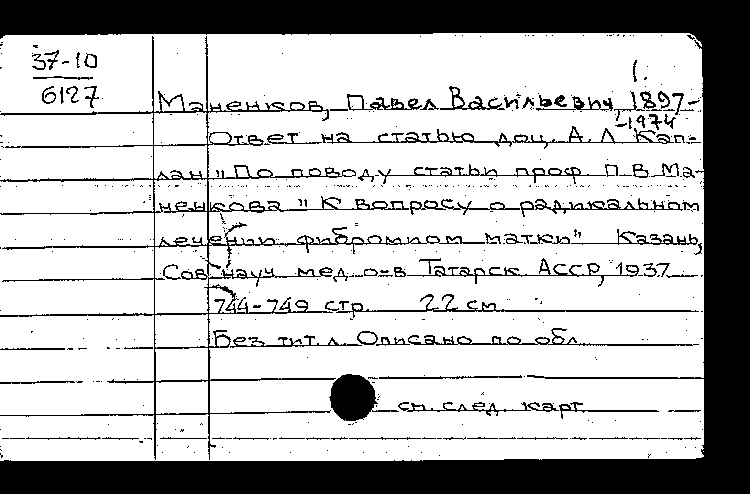 37-10
6127
1.
Маненков, Павел Васильевич, 1897-
-1974
Ответ на статью доц. А. Л Кап-
лан "По поводу статьи проф. П. В. Ма-
ненкова "К вопросу о радикальном
лечении фибромиом матки" Казань,
Сов науч. мед. о-в Татарск. АССР, 1937
744-749 стр. 22 см.
Без тит. л. Описано по обл.
см. след. карт.